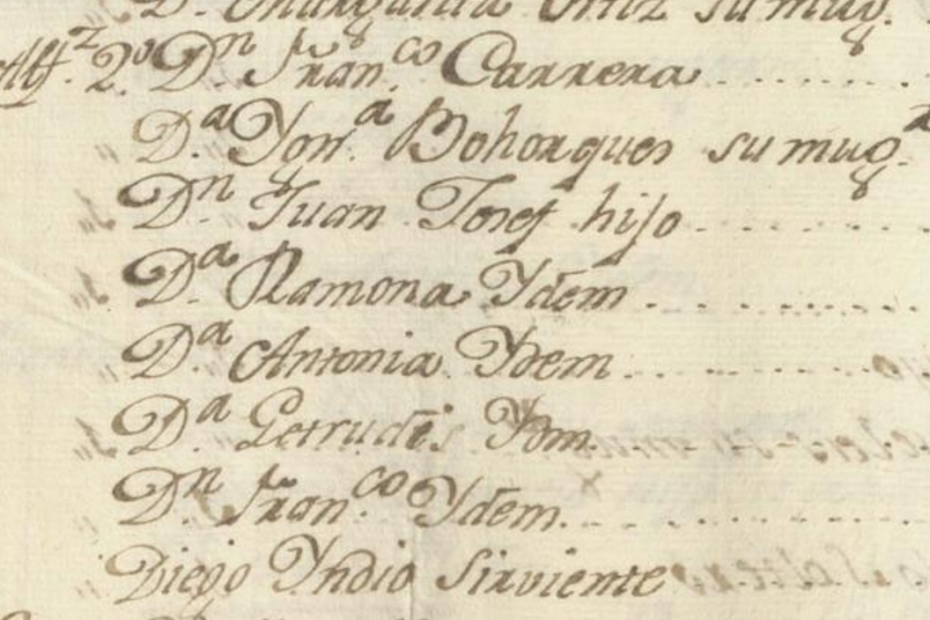 D. Margarita Ortiz su mug.
Alf.z 2.o D.n Fran.co Carrera
D.a Yon.a Bohorques su mug.r
D.n Juan Josef hijo
D.a Ramona Ydem
D.a Antonia Ydem
D.a Getrudis Ydm
D.n Fran.co Ydem.
Diego Yndio Sirviente